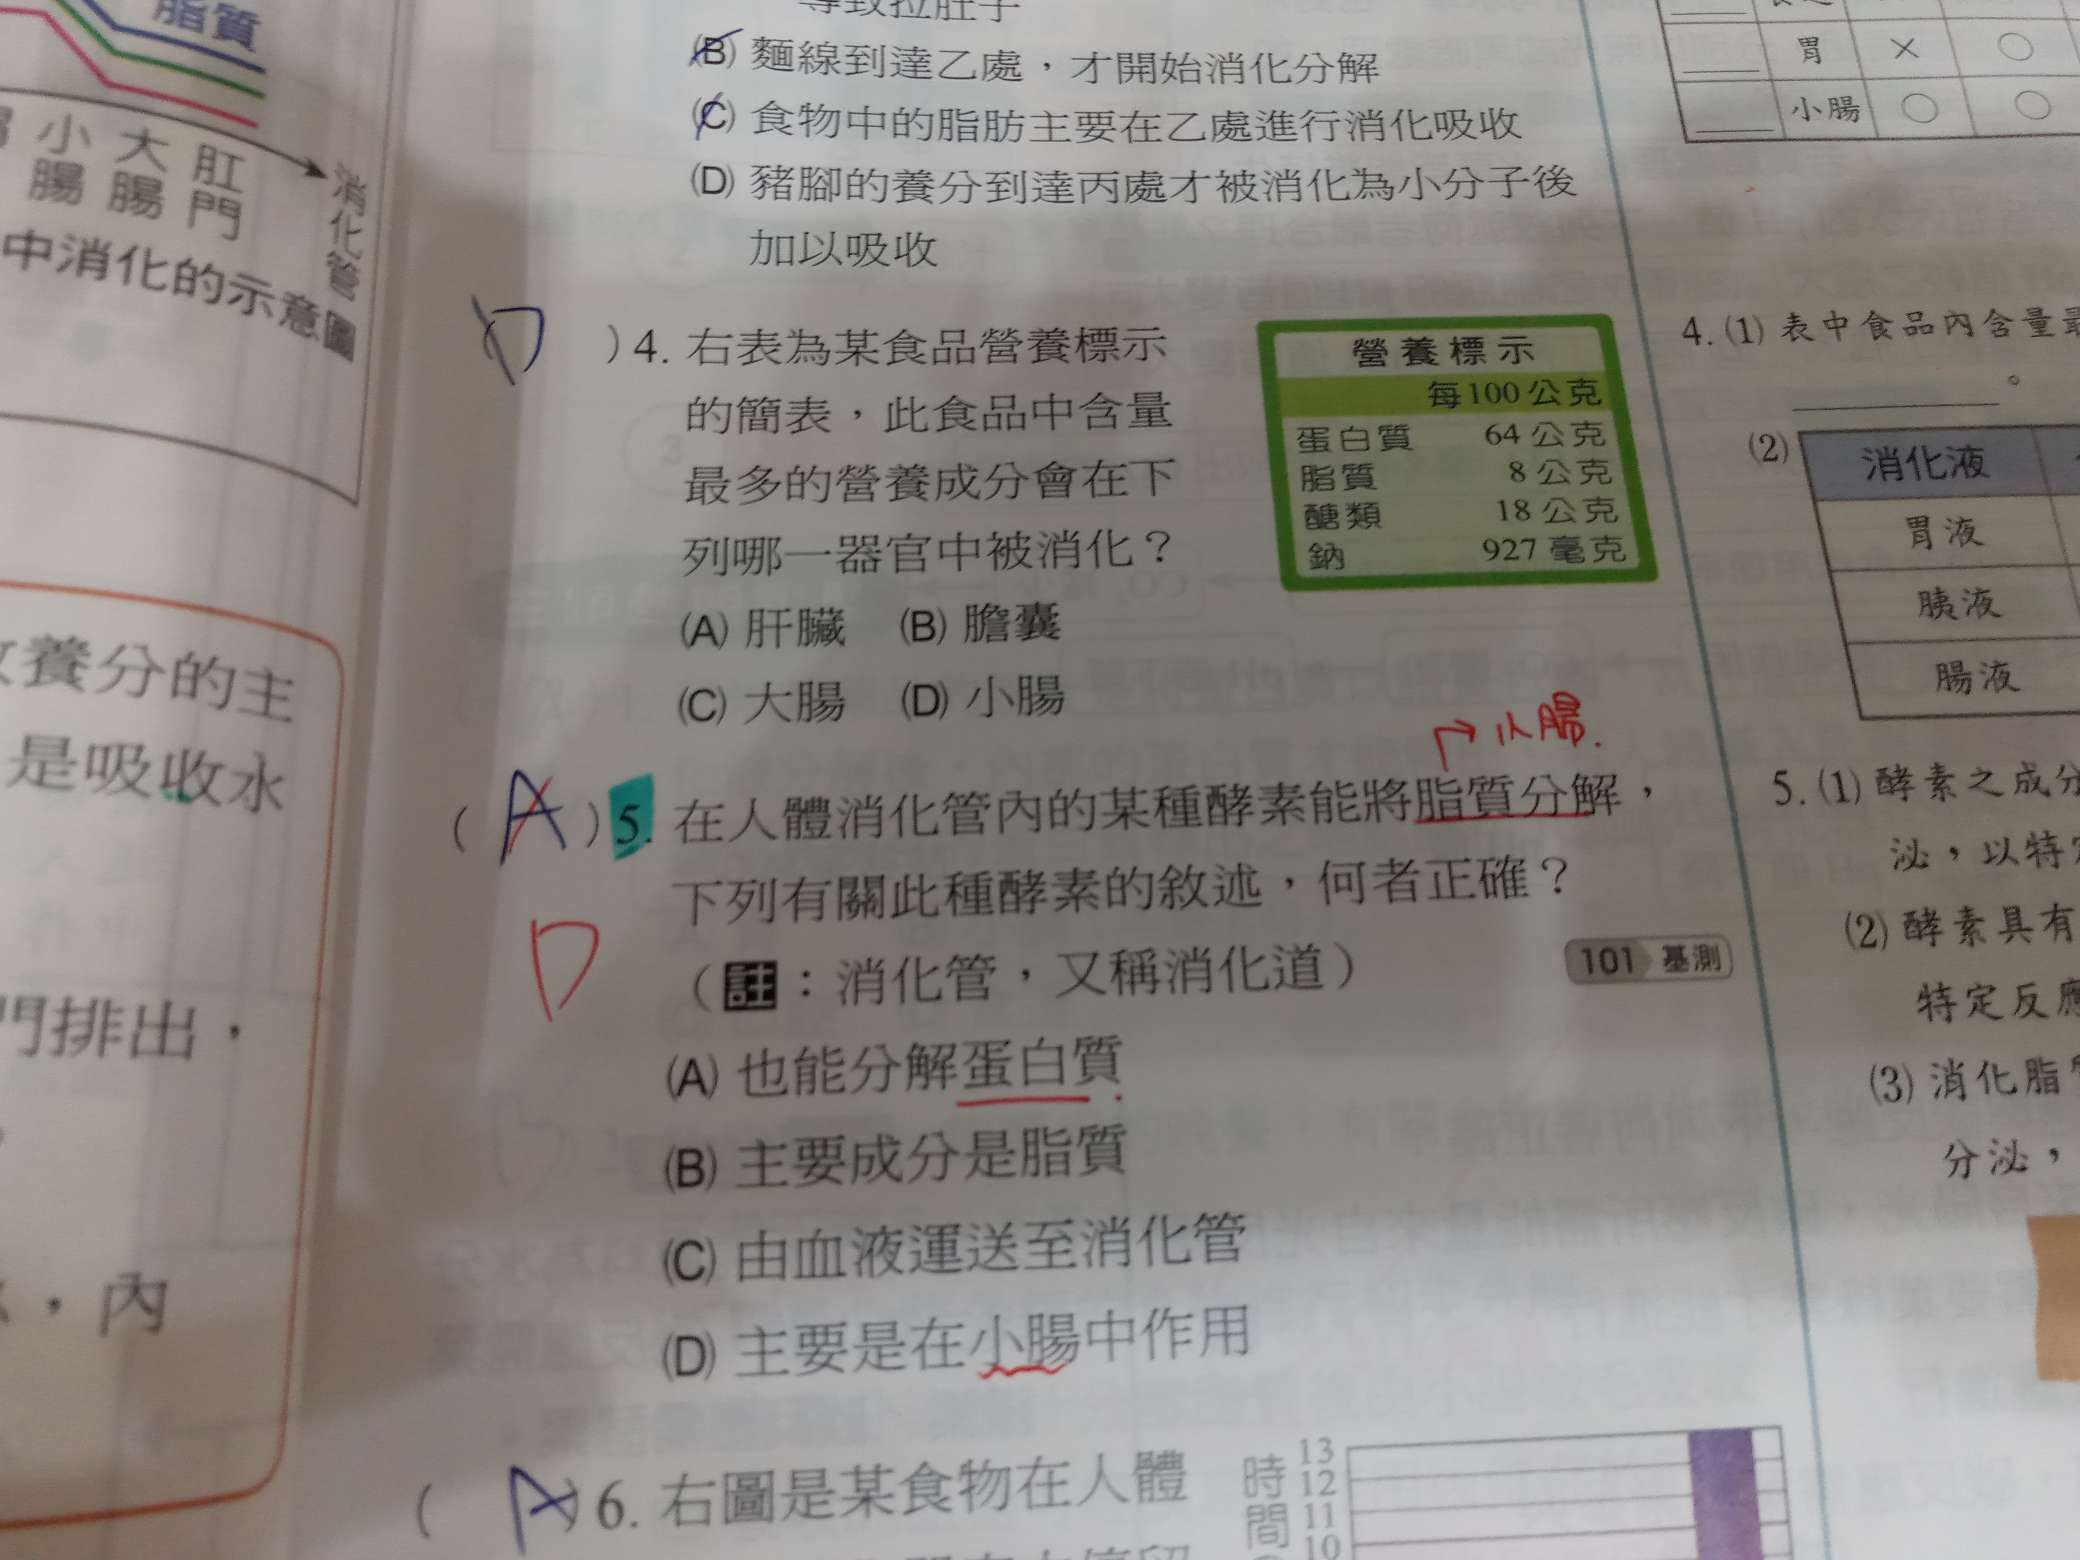 脂質
小腸
大腸
肛門
消化管
中消化的示意圖
養分的主
是吸收水
門排出，
，內
(B) 麵線到達乙處，才開始消化分解
(C) 食物中的脂肪主要在乙處進行消化吸收
(D) 豬腳的養分到達丙處才被消化為小分子後
加以吸收
(D) 4. 右表為某食品營養標示
的簡表，此食品中含量
最多的營養成分會在下
列哪一器官中被消化？
(A) 肝臟 (B) 膽囊
(C) 大腸 (D) 小腸
營養標示
每100公克
蛋白質 64公克
脂質 8公克
醣類 18公克
鈉 927毫克
小腸.
(A) 5. 在人體消化管內的某種酵素能將脂質分解，
下列有關此種酵素的敘述，何者正確？
D
（註：消化管，又稱消化道） 101 基測
(A) 也能分解蛋白質
(B) 主要成分是脂質
(C) 由血液運送至消化管
(D) 主要是在小腸中作用
(A) 6. 右圖是某食物在人體
時間
13
12
11
10
胃 × ○
小腸 ○ ○
4. (1) 表中食品內含量
。
(2) 消化液
胃液
胰液
腸液
5. (1) 酵素之成分
泌，以特
(2) 酵素具有
特定反應
(3) 消化脂
分泌，